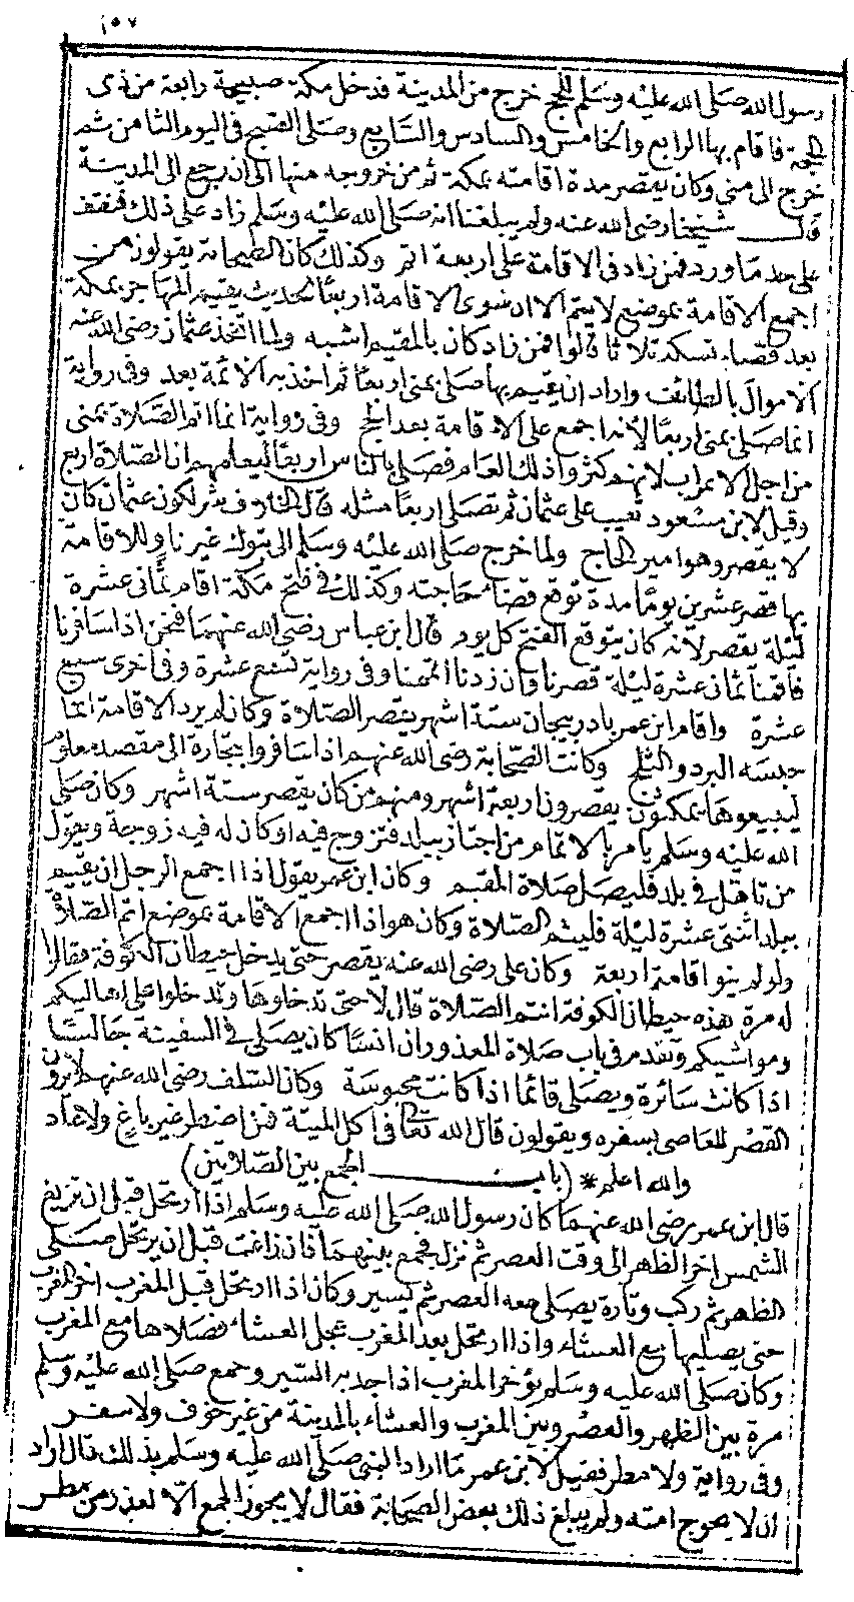 ١٥٧
رسول الله صلى الله عليه وسلم للحج خرج من المدينة فدخل مكة صبيحة رابعة من ذى
الحجة فاقام بها الرابع والخامس والسادس والسابع وصلى الصبح فى اليوم الثامن ثم
خرج الى منى وكان يقصر مدة اقامته بمكة ثم من خروجه منها الى ان رجع الى المدينة
قال شيخنا رضى الله عنه ولم يبلغنا انه صلى الله عليه وسلم زاد على ذلك فنقف
على حد ما ورد فمن زاد فى الاقامة على اربعة اتم وكذلك كان الصحابة يقولون من
اجمع الاقامة بموضع لا يتم الا ان نوى الاقامة اربعا لحديث يقيم المهاجر بمكة
بعد قضاء نسكه ثلاثا قالوا فمن زاد كان بالمقيم اشبه ولما اتخذ عثمان رضى الله عنه
الاموال بالطائف واراد ان يقيم بها صلى بمنى اربعا ثم اخذ به الائمة بعد وفى رواية
انما صلى بمنى اربعا لانه اجمع على الاقامة بعد الحج وفى رواية انما اتم الصلاة بمنى
من اجل الاعراب لانهم كثروا ذلك العام فصلى بالناس اربعا ليعلمهم ان الصلاة اربع
وقيل لابن مسعود تعيب على عثمان ثم تصلى اربعا مثله قال الخلاف شر لكون عثمان كان
لا يقصر وهو امير الحاج ولما خرج صلى الله عليه وسلم الى تبوك غيرنا وللاقامة
بها قصر عشرين يوما مدة توقع قضاء حاجته وكذلك فى فتح مكة اقام ثمانى عشرة
ليلة يقصر لانه كان يتوقع الفتح كل يوم قال ابن عباس رضى الله عنهما فنحن اذا سافرنا
فاقمنا ثمانى عشرة ليلة قصرنا وان زدنا اتممنا وفى رواية تسع عشرة وفى اخرى سبع
عشرة واقام ابن عمر باذربيجان ستة اشهر يقصر الصلاة وكان لم يرد الاقامة انما
حبسه البرد والثلج وكانت الصحابة رضى الله عنهم اذا سافروا بتجارة الى مقصد معلوم
ليبيعوها يمكثون يقصرون اربعة اشهر ومنهم من كان يقصر ستة اشهر وكان صلى
الله عليه وسلم يامر بالاتمام من اجتاز ببلد فتزوج فيه او كان له فيه زوجة ويقول
من تاهل فى بلد فليصل صلاة المقيم وكان ابن عمر يقول اذا اجمع الرجل ان يقيم
ببلد اثنتى عشرة ليلة فليتم الصلاة وكان هو اذا اجمع الاقامة بموضع اتم الصلاة
ولو لم ينو اقامة اربعة وكان على رضى الله عنه يقصر حتى يدخل حيطان الكوفة فقالوا
له مرة هذه حيطان الكوفة انتم الصلاة قال لا حتى تدخلوها وتدخلوا على اهاليكم
ومواشيكم وتقدم فى باب صلاة المعذور ان انسا كان يصلى فى السفينة جالسا
اذا كانت سائرة ويصلى قائما اذا كانت محبوسة وكان السلف رضى الله عنهم لا يرون
القصر للعاصى بسفره ويقولون قال الله تعالى فى اكل الميتة فمن اضطر غير باغ ولا عاد
والله اعلم * (باب الجمع بين الصلاتين)
قال ابن عمر رضى الله عنهما كان رسول الله صلى الله عليه وسلم اذا ارتحل قبل ان تزيغ
الشمس اخر الظهر الى وقت العصر ثم نزل فجمع بينهما فان زاغت قبل ان يرتحل صلى
الظهر ثم ركب وتارة يصلى معه العصر ثم يسير وكان اذا ارتحل قبل المغرب اخر المغرب
حتى يصليها مع العشاء واذا ارتحل بعد المغرب عجل العشاء فصلاها مع المغرب
وكان صلى الله عليه وسلم يؤخر المغرب اذا جد به السير وجمع صلى الله عليه وسلم
مرة بين الظهر والعصر وبين المغرب والعشاء بالمدينة من غير خوف ولا سفر
وفى رواية ولا مطر فقيل لابن عمر ما اراد النبى صلى الله عليه وسلم بذلك قال اراد
ان لا يحوج امته ولم يبلغ ذلك بعض الصحابة فقال لا يجوز الجمع الا لعذر من مطر